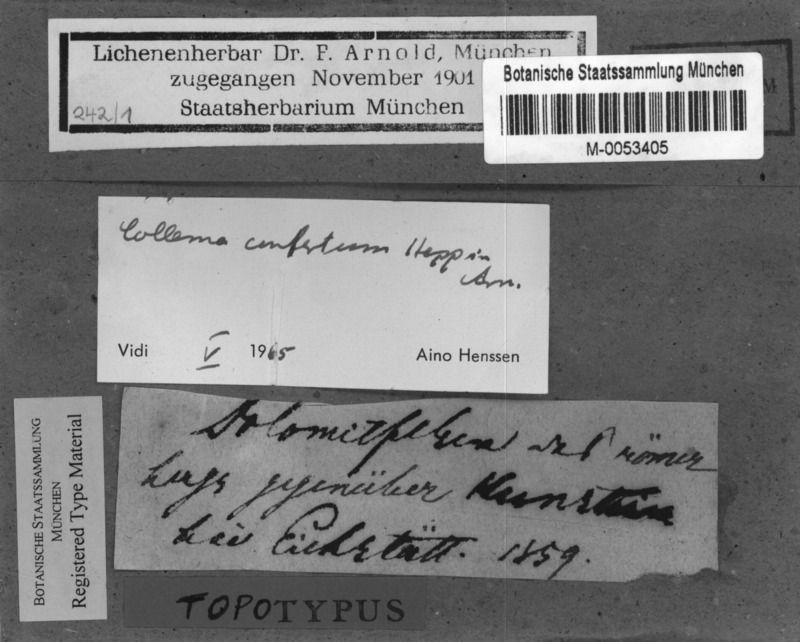 Lichenenherbar Dr. F. Arnold, München
zugegangen November 1901
242/1 Staatsherbarium München
Botanische Staatssammlung München
M-0053405
M
Collema confertum Hepp in
Arn.
Vidi V 1965 Aino Henssen
BOTANISCHE STAATSSAMMLUNG
MÜNCHEN
Registered Type Material
Dolomitfelsen des römer
bergs gegenüber Kunstein
bei Eichstätt. 1859.
TOPOTYPUS